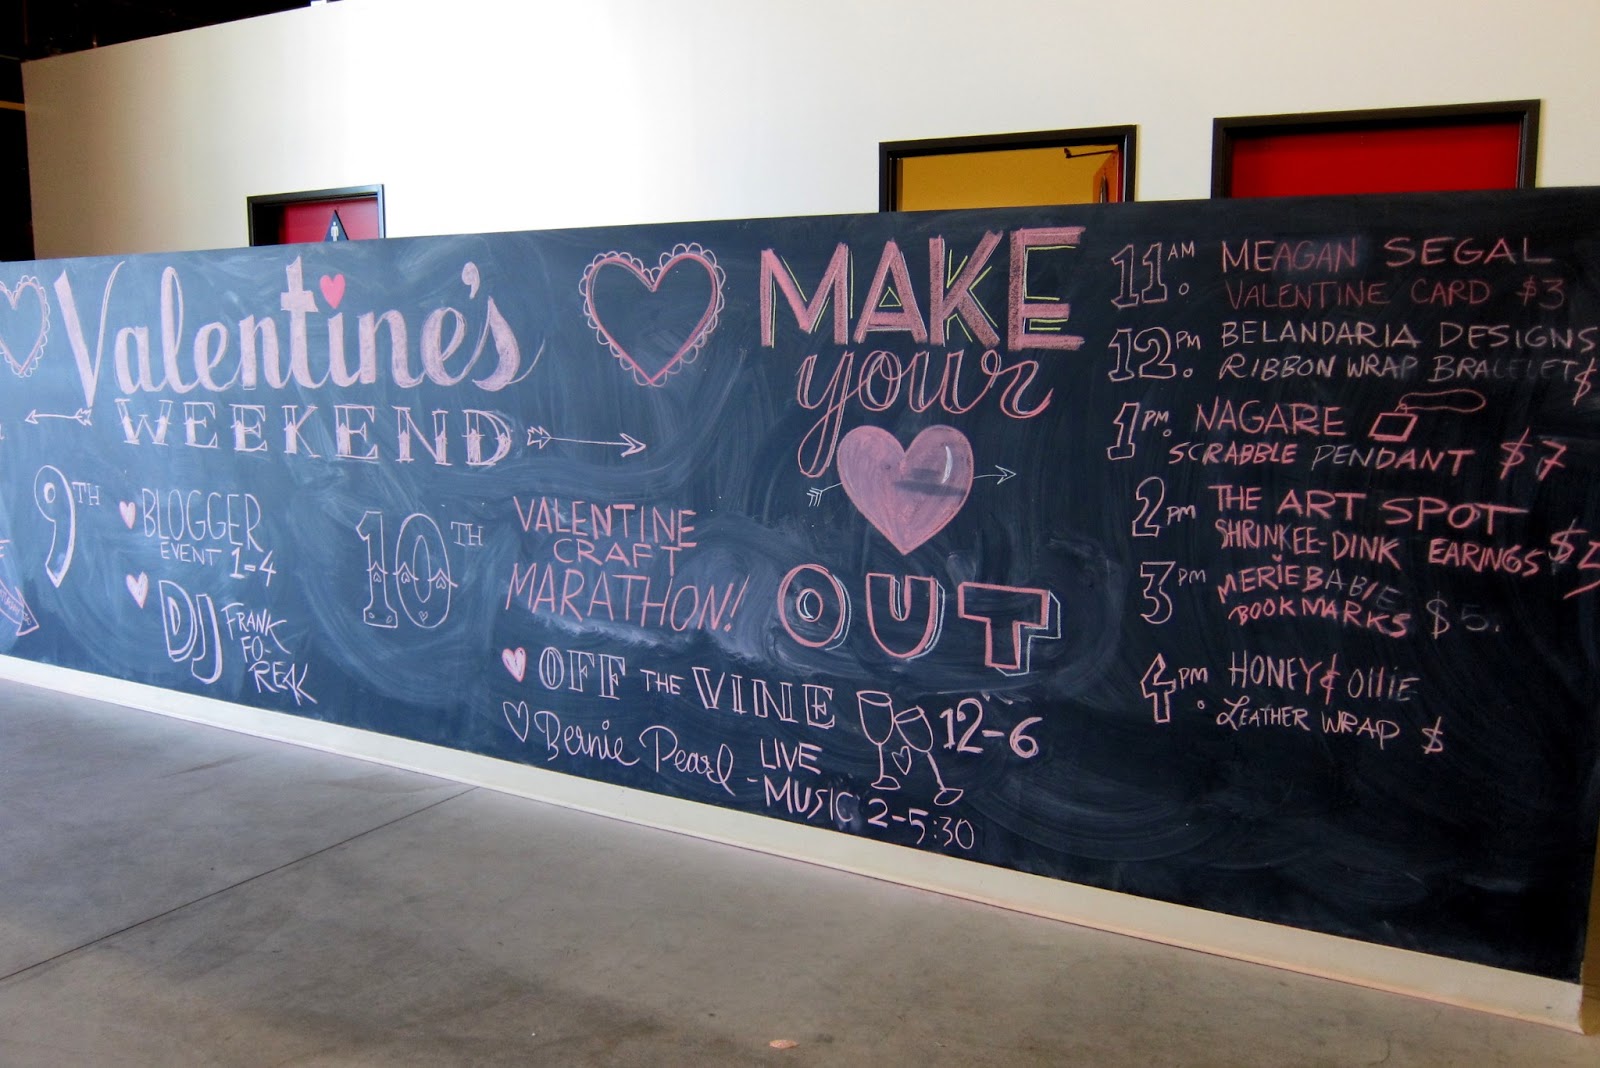 Valentine's
WEEKEND
9TH
BLOGGER
EVENT 1-4
DJ FRANK
FO-
REAK
10TH
VALENTINE
CRAFT
MARATHON!
OFF THE VINE 12-6
Bernie Pearl - LIVE
MUSIC 2-5:30
MAKE
your
OUT
11 AM. MEAGAN SEGAL
VALENTINE CARD $3
12 PM. BELANDARIA DESIGNS
RIBBON WRAP BRACELET $
1 PM. NAGARE
SCRABBLE PENDANT $7
2 PM THE ART SPOT
SHRINKEE-DINK EARINGS
3 PM MERIEBABIE
BOOKMARKS $5.
4 PM. HONEY & OLLIE
LEATHER WRAP $